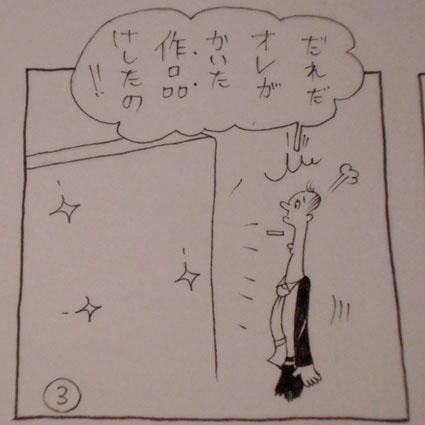 だれだ
オレが
かいた
作品
けしたの
!!
3